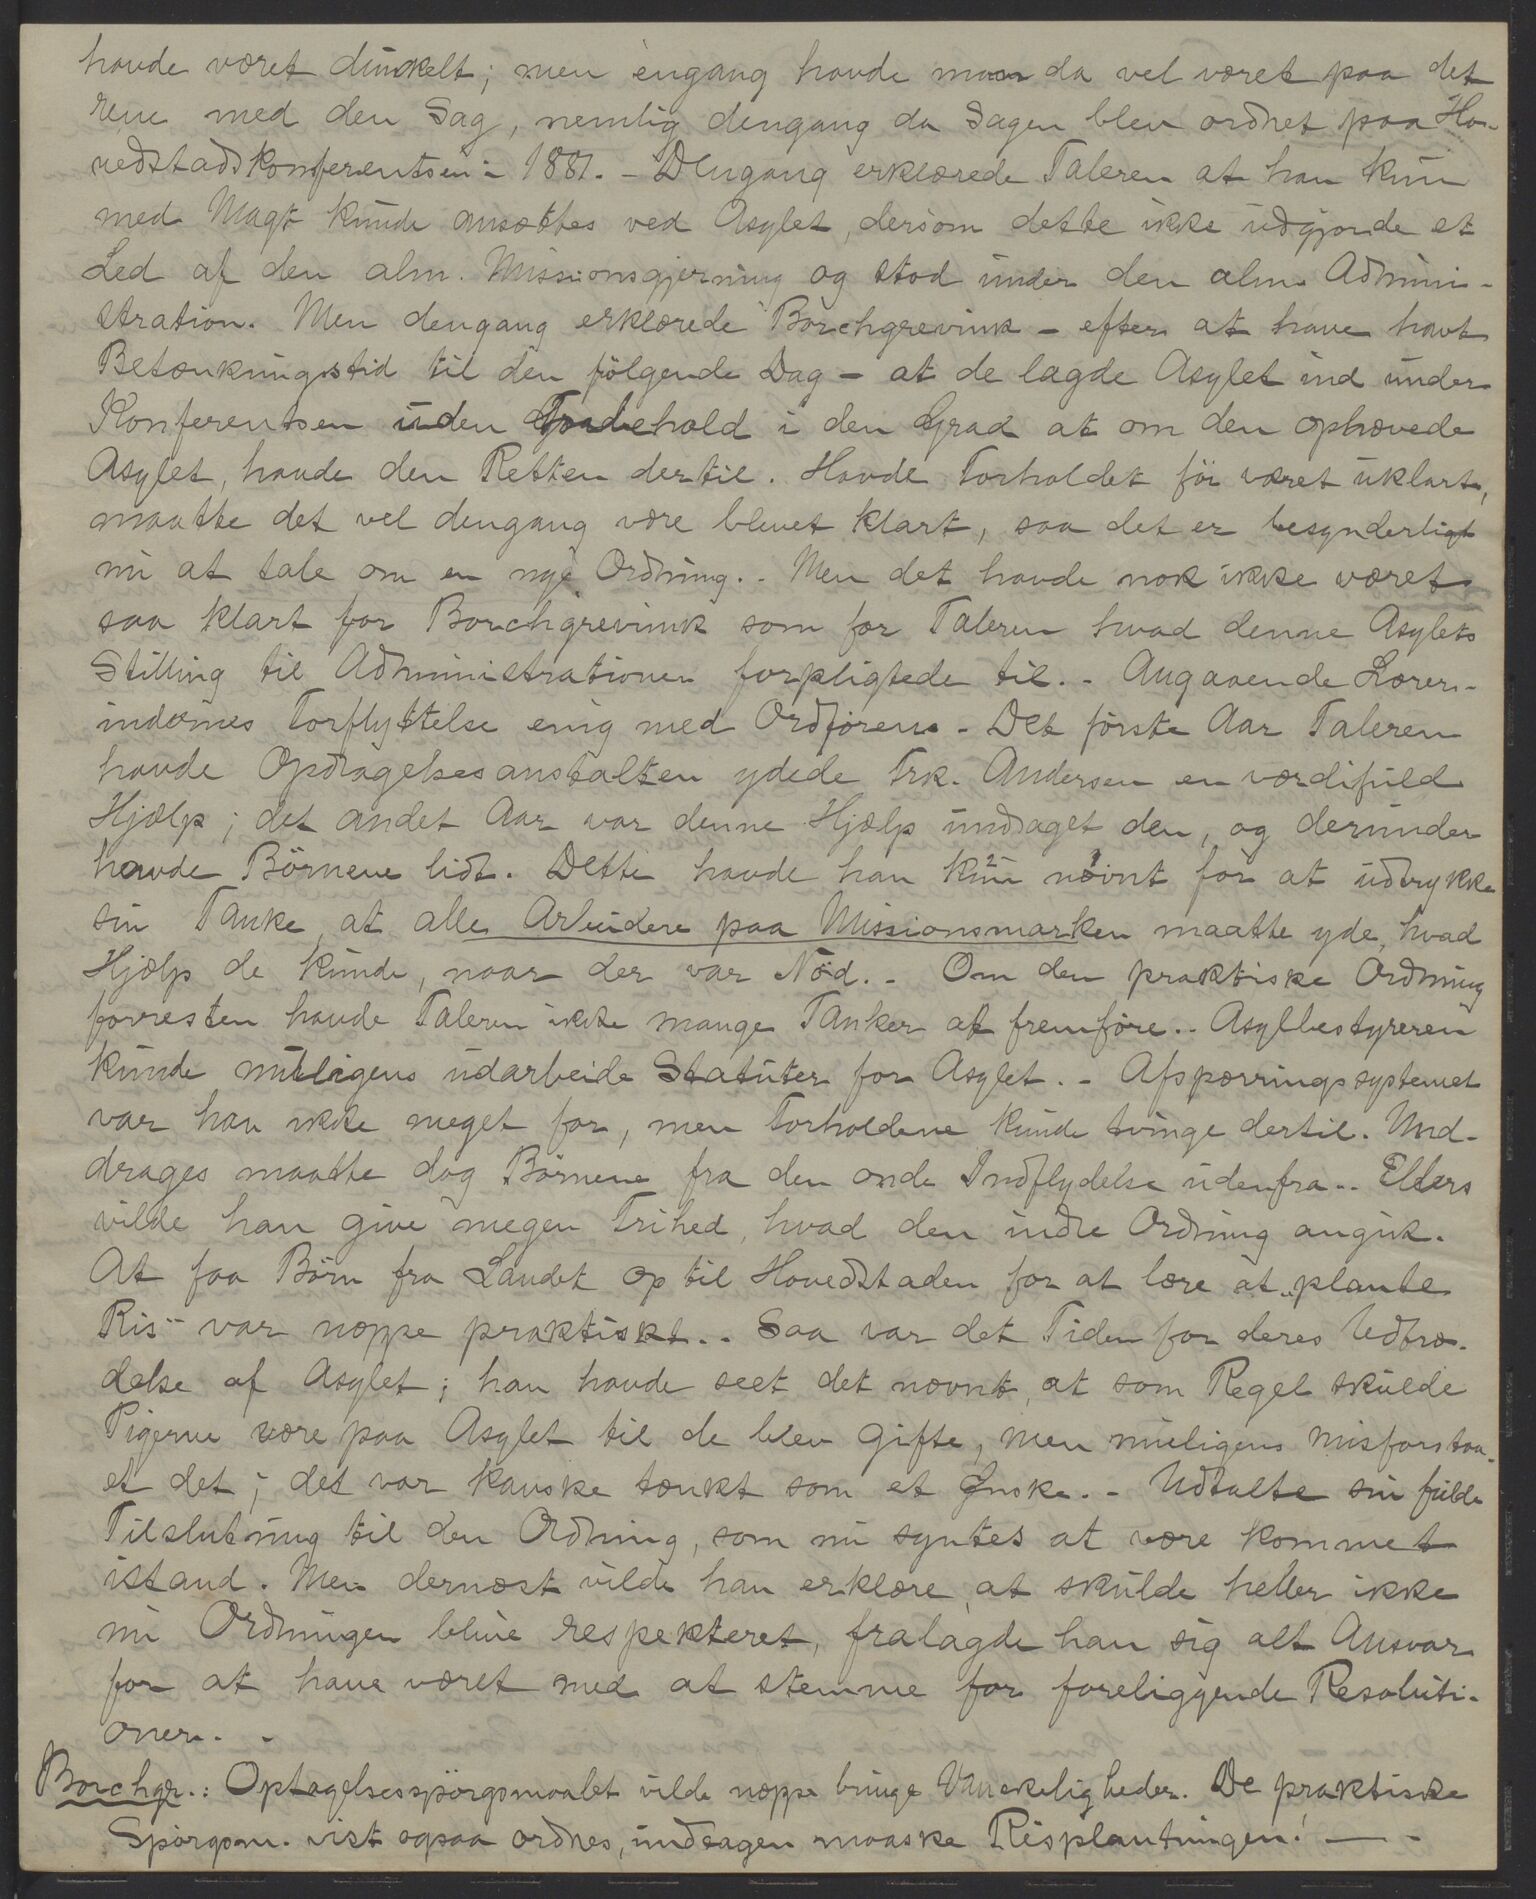 havde været dunkelt; men engang havde man da vel været paa det
rene med den Sag, nemlig dengang da Sagen blev ordnet paa Ho-
vedstadskonferentsen i 1881. - Dengang erklærede Taleren at han kun
med Magt kunde ansættes ved Asylet, dersom dette ikke udgjorde et
Led af den alm. Missionsgjerning og stod under den alm. Admini-
stration. Men dengang erklærede Borchgrevink - efter at have havt
Betænkningstid til den følgende Dag - at de lagde Asylet ind under
Konferentsen uden Forbehold i den Grad at om den ophævede
Asylet, havde den Retten dertil. Havde Forholdet för været uklart,
maatte det vel dengang være blevet klart, saa det er besynderligt
nu at tale om en nye Ordning. - Men det havde nok ikke været
saa klart for Borchgrevink som for Taleren hvad denne Asylets
Stilling til Administrationen forpligtede til. - Angaaende Lærer-
indernes Forflyttelse enig med Ordføreren. - Det förste Aar Taleren
havde Opdragelsesanstalten ydede Frk. Andersen en værdifuld
Hjælp; det andet Aar var denne Hjælp unddraget den, og derunder
havde Börnene lidt. Dette havde han kun nævnt for at udtrykke
sin Tanke, at alle Arbeidere paa Missionsmarken maatte yde, hvad
Hjælp de kunde, naar der var Nöd. - Om den praktiske Ordning
forresten havde Taleren ikke mange Tanker at fremföre. - Asylbestyreren
kunde muligens udarbeide Statuter for Asylet. - Afspærringssystemet
var han ikke meget for, men Forholdene kunde tvinge dertil. Und-
drages maatte dog Börnene fra den onde Indflydelse udenfra. - Ellers
vilde han give megen Frihed, hvad den indre Ordning angik.
At faa Börn fra Landet op til Hovedstaden for at lære at "plante
Ris" var neppe praktiskt. - Saa var det Tiden for deres Udtræ-
delse af Asylet; han havde seet det nævnt, at som Regel skulde
Pigerne være paa Asylet til de blev gifte, men muligens misforstaa-
et det; det var kanske tænkt som et Ønske. - Udtalte sin fulde
Tilslutning til den Ordning, som nu syntes at være kommet
istand. Men dernæst vilde han erklære, at skulde heller ikke
nu Ordningen blive respekteret, fralagde han sig alt Ansvar
for at have været med at stemme for foreliggende Resoluti-
oner. -
Borchgr.: Optagelsesspörgsmaalet vilde neppe bringe Vanskeligheder. De praktiske
Spörgsm. vist ogsaa ordnes, undtagen maaske Risplantningen! -